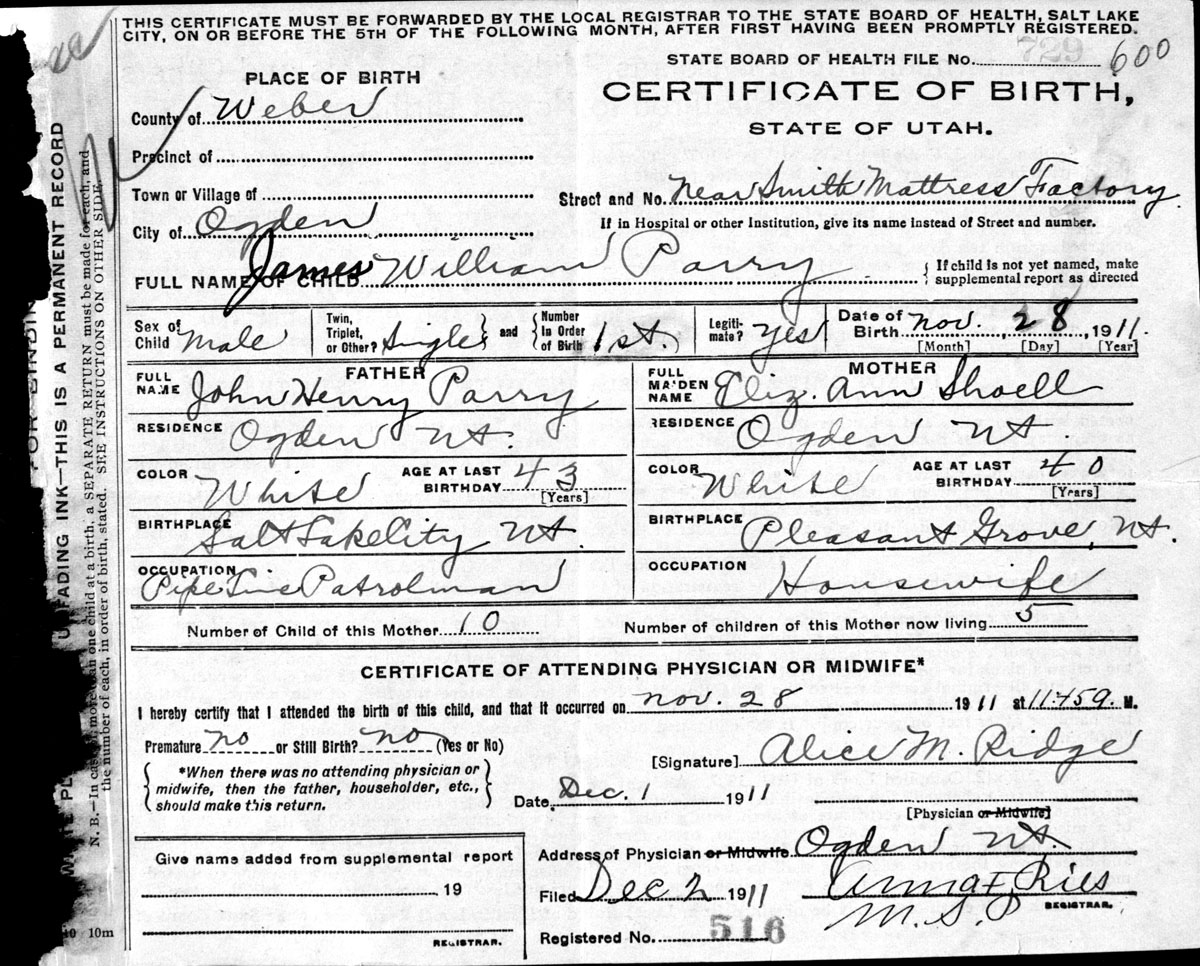 THIS CERTIFICATE MUST BE FORWARDED BY THE LOCAL REGISTRAR TO THE STATE BOARD OF HEALTH, SALT LAKE
CITY, ON OR BEFORE THE 5TH OF THE FOLLOWING MONTH, AFTER FIRST HAVING BEEN PROMPTLY REGISTERED.
STATE BOARD OF HEALTH FILE No. 729 600
CERTIFICATE OF BIRTH,
STATE OF UTAH.
PLACE OF BIRTH
County of Weber
Precinct of
Town or Village of
City of Ogden
Street and No. Near Smith Mattress Factory.
If in Hospital or other Institution, give its name instead of Street and number.
FULL NAME OF CHILD James William Parry
{ If child is not yet named, make
supplemental report as directed
Sex of Child Male
Twin, Triplet, or Other? Single } and { Number In Order of Birth 1st. )
Legiti- mate? Yes
Date of Birth Nov. 28, 1911.
[Month] [Day] [Year]
FATHER
FULL NAME John Henry Parry
RESIDENCE Ogden Ut.
COLOR White
AGE AT LAST BIRTHDAY 43
[Years]
BIRTHPLACE Salt Lake City Ut.
OCCUPATION Pipe Line Patrolman
MOTHER
FULL MAIDEN NAME Eliz. Ann Shoell
RESIDENCE Ogden Ut
COLOR White
AGE AT LAST BIRTHDAY 40
[Years]
BIRTHPLACE Pleasant Grove, Ut.
OCCUPATION Housewife
Number of Child of this Mother 10
Number of children of this Mother now living 5
CERTIFICATE OF ATTENDING PHYSICIAN OR MIDWIFE*
I hereby certify that I attended the birth of this child, and that it occurred on Nov. 28 1911 at M.
Premature no or Still Birth? no (Yes or No)
{ *When there was no attending physician or
midwife, then the father, householder, etc.,
should make this return. }
[Signature] Alice M. Ridge
Date Dec. 1 1911
[Physician or Midwife]
Give name added from supplemental report
19
REGISTRAR.
Address of Physician or Midwife Ogden Ut.
Filed Dec 2 1911 Anna F. Ries
M.S.P
REGISTRAR.
Registered No. 516
10m
FADING INK—THIS IS A PERMANENT RECORD
N. B.—In case of more than one child at a birth, a SEPARATE RETURN must be made for each, and
the number of each, in order of birth, stated. SEE INSTRUCTIONS ON OTHER SIDE.